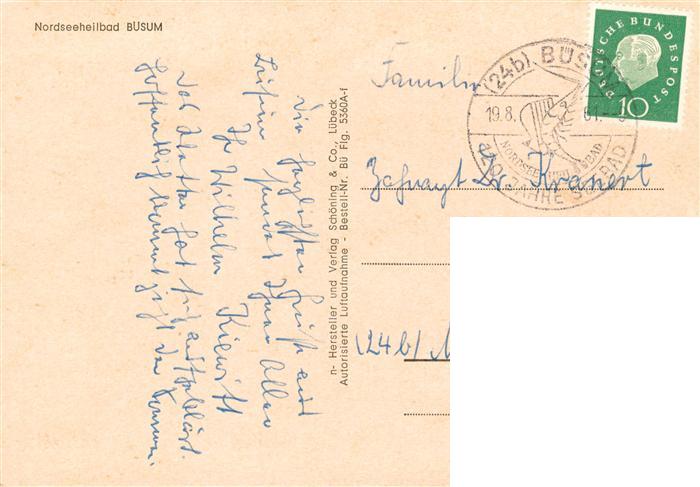 Nordseeheilbad BÜSUM
Die herzlichsten Grüße aus
Büsum sendet Ihnen Allen
Ihr Wilhelm
Das Wetter hat sich aufgeklärt.
Hoffentlich kommt jetzt der Sommer.
n- Hersteller und Verlag Schöning & Co., Lübeck
Autorisierte Luftaufnahme - Bestell-Nr. Bü Flg. 5360A-f
DEUTSCHE BUNDESPOST
10
(24b) BÜSUM
19.8.61.-
NORDSEEHEILBAD
JAHRE
Familie
Zahnarzt Dr. Kranert
(24b)